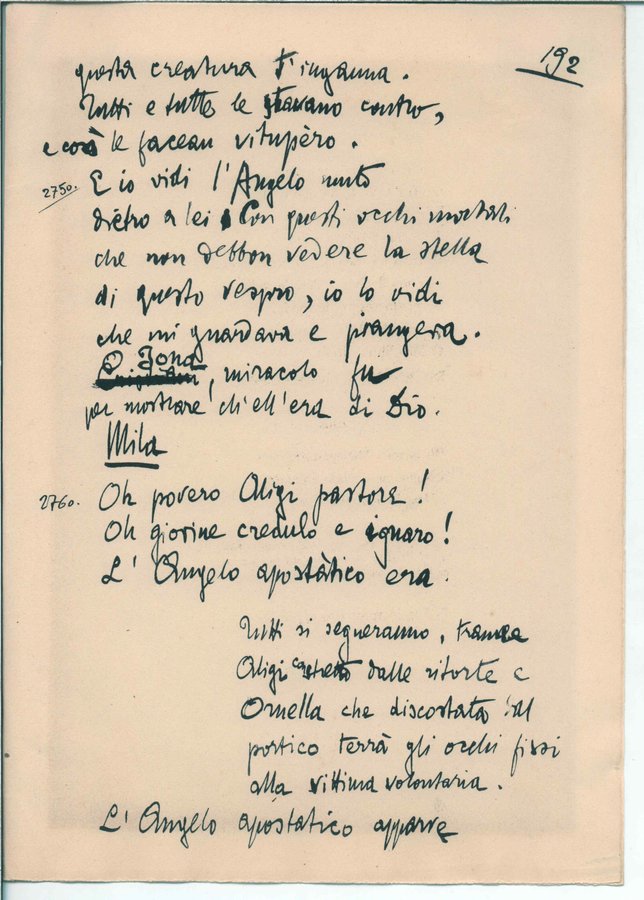 192
questa creatura t'inganna.
Tutti e tutte le stavano contro,
e così le facean vitupèro.
2750. E io vidi l'Angelo muto
dietro a lei. Con questi occhi mortali
che non debbon vedere la stella
di questo vespro, io lo vidi
che mi guardava e piangeva.
O Jona, miracolo fu
per mostrare ch'ell'era di Dio.
Mila
2760. Oh povero Aligi pastore!
Oh giovine credulo e ignaro!
L'Angelo apostàtico era.
Tutti si segneranno, tranne
Aligi costretto dalle ritorte e
Ornella che discostata dal
portico terrà gli occhi fissi
alla vittima volontaria.
L'Angelo apostatico apparve